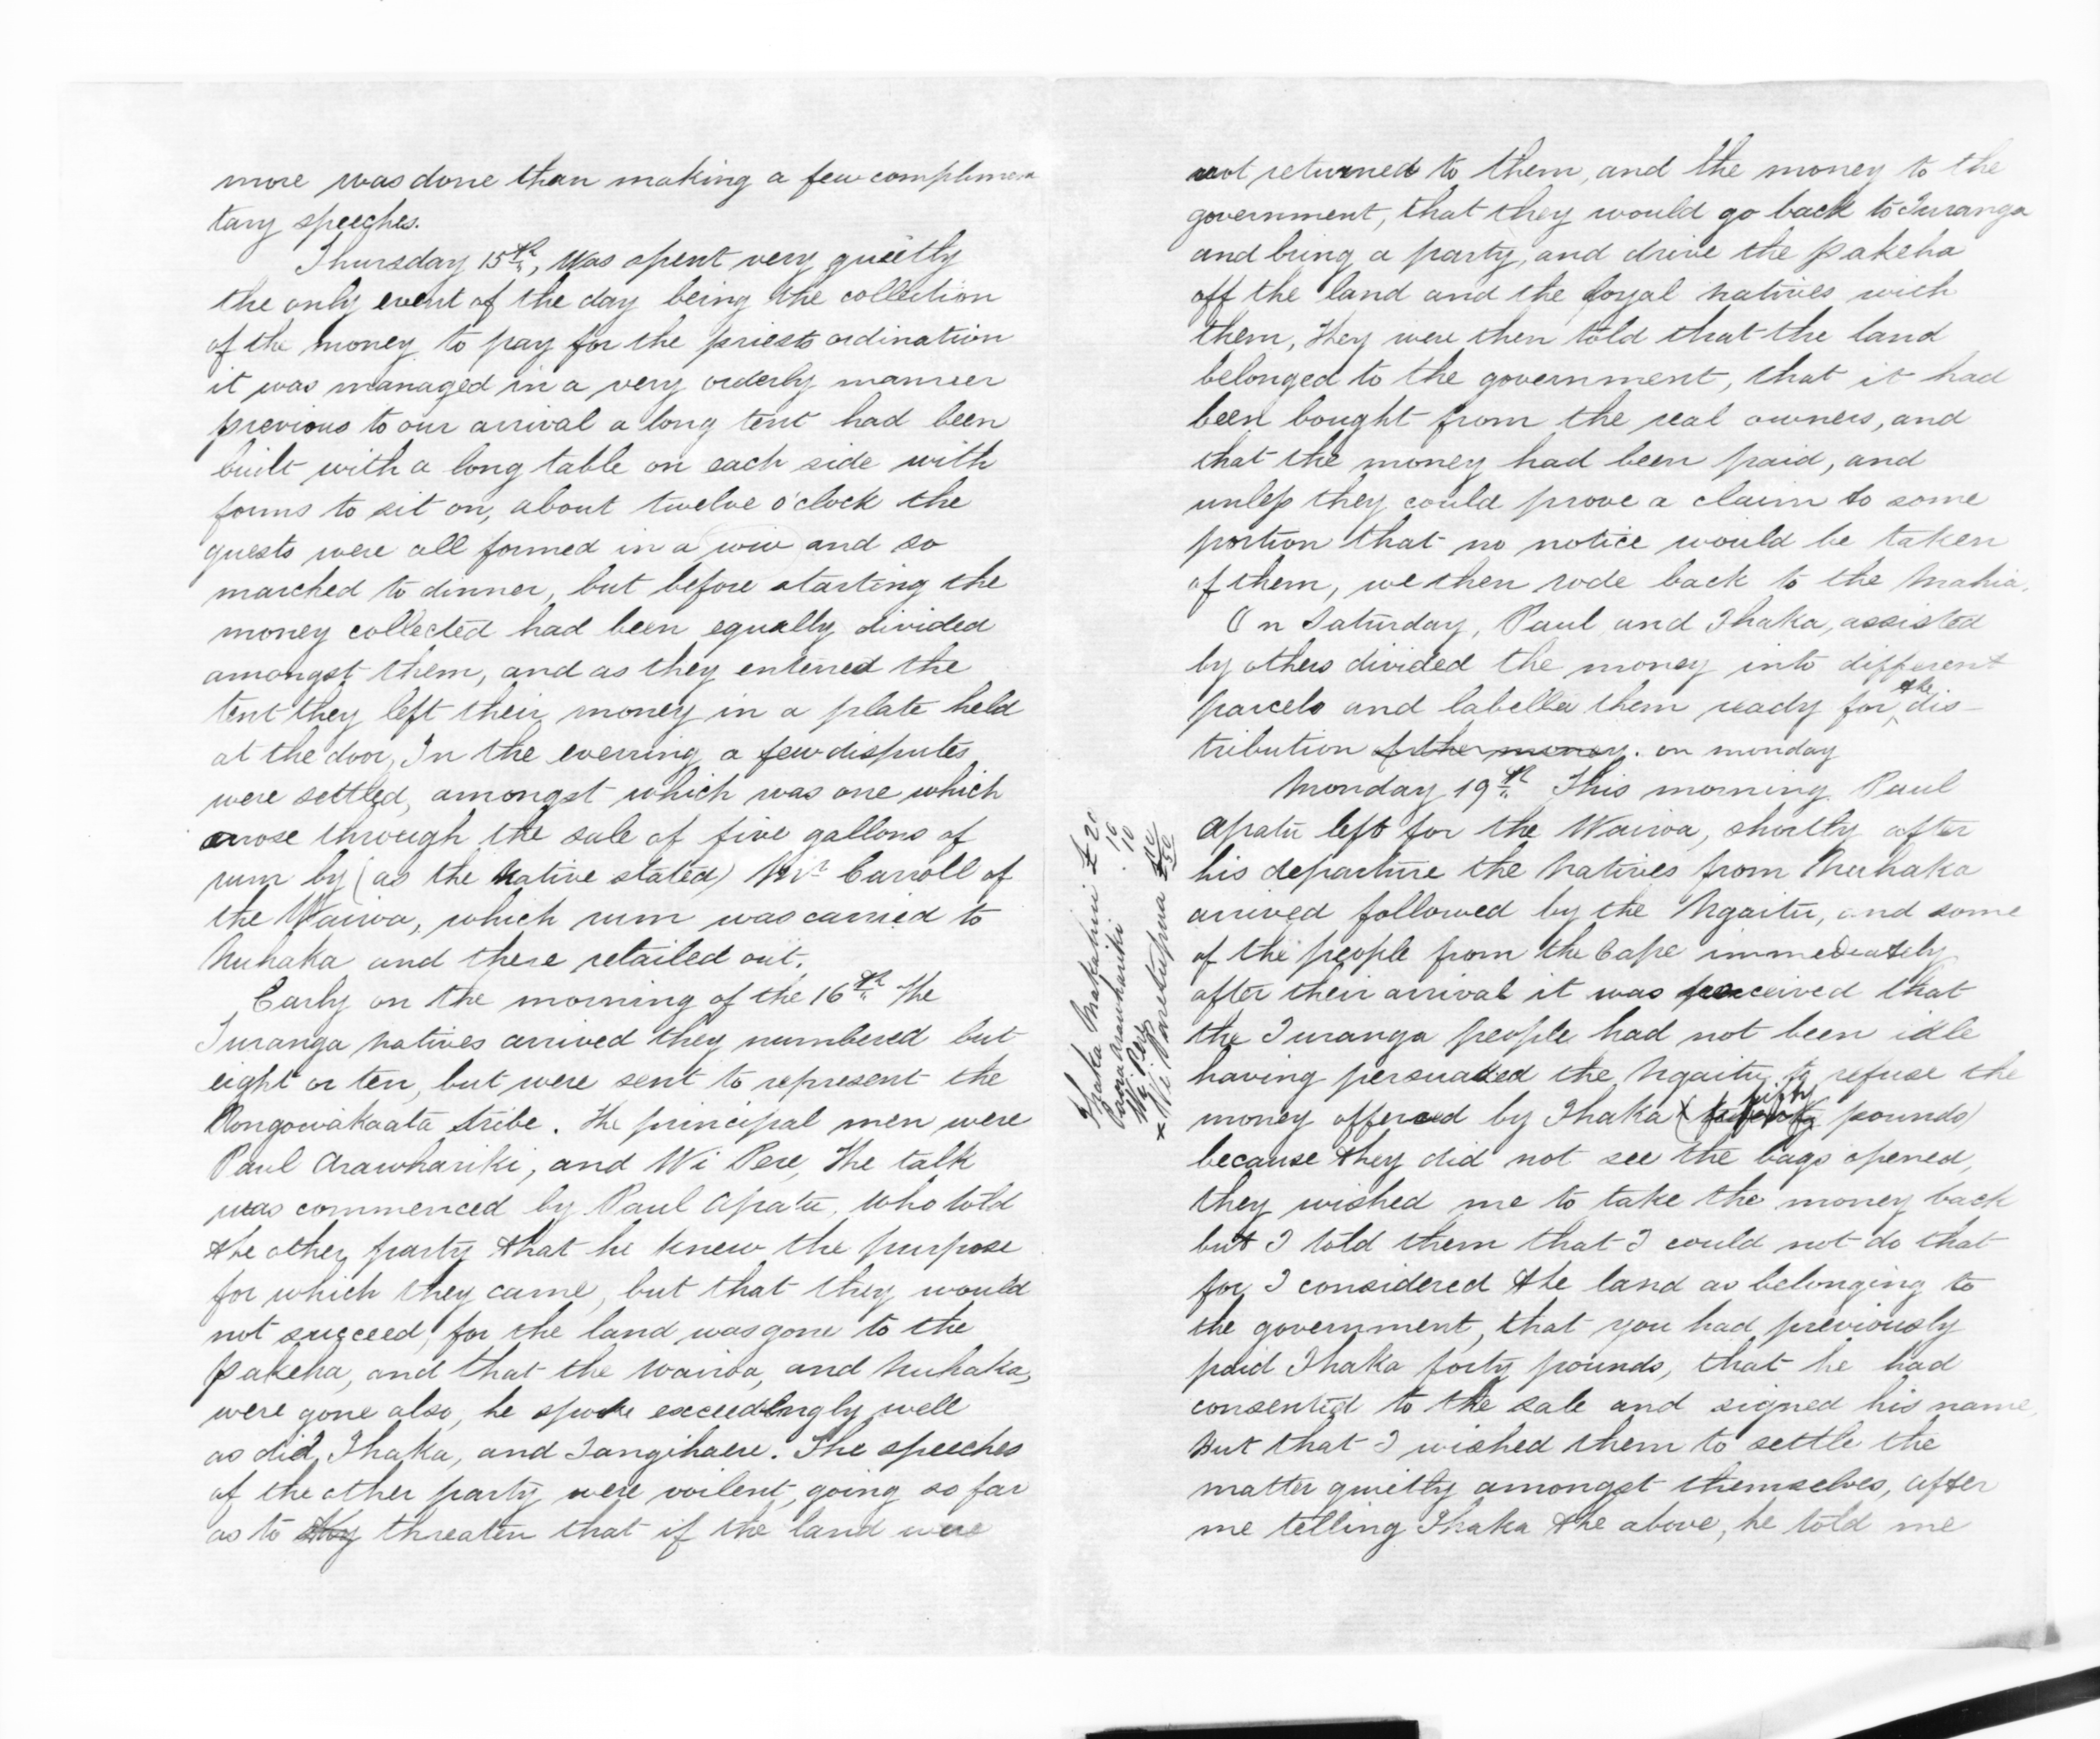 more was done than making a few complimen
tary speeches.
Thursday 15th, Was spent very quietly
the only event of the day being the collection
of the money to pay for the priests ordination
it was managed in a very orderly manner
previous to our arrival a long tent had been
built with a long table on each side with
forms to sit on, about twelve o'clock the
guests were all formed in a wiw and so
marched to dinner, but before starting the
money collected had been equally divided
amongst them, and as they entered the
tent they left their money in a plate held
at the door, In the evening a few disputes
were settled, amongst which was one which
arose through the sale of five gallons of
rum by (as the Native stated) Mr Carroll of
the Wairoa, which rum was carried to
Nuhaka and there retailed out.
Early on the morning of the 16th the
Turanga natives arrived they numbered but
eight or ten, but were sent to represent the
Rongowakaata tribe. The principal men were
Paul Arawhariki, and Wi Pere, The talk
was commenced by Paul Apatu, who told
the other party that he knew the purpose
for which they came, but that they would
not succeed, for the land was gone to the
pakeha, and that the Wairoa, and Nuhaka,
were gone also, he spoke exceedingly well
as did Ihaka, and Tangihaere. The speeches
of the other party were voilent, going so far
as to threaten that if the land were
not returned to them, and the money to the
government, that they would go back to Turanga
and bring a party, and drive the pakeha
off the land and the loyal natives with
them, they were then told that the land
belonged to the government, that it had
been bought from the real owners, and
that the money had been paid, and
unless they could prove a claim to some
portion that no notice would be taken
of them, we then rode back to the Mahia.
On Saturday, Paul and Ihaka, assisted
by others divided the money into different
parcels and labelled them ready for the dis-
tribution of the money. on monday
Monday 19th This morning Paul
Apatu left for the Wairoa, shortly after
his departure the Natives from Nuhaka
arrived followed by the Ngaitu, and some
of the people from the Cape immediately
after their arrival it was perceived that
the Turanga people had not been idle
having persuaded the Ngaitu to refuse the
money offered by Ihaka (x fifty pounds)
because they did not see the bags opened,
they wished me to take the money back
but I told them that I could not do that
for I considered the land as belonging to
the government, that you had previously
paid Ihaka forty pounds, that he had
consented to the sale and signed his name,
but that I wished them to settle the
matter quietly amongst themselves, after
me telling Ihaka the above, he told me
Ihaka £20
Arawhariki 10
Wi Pere 10
x Wi £50